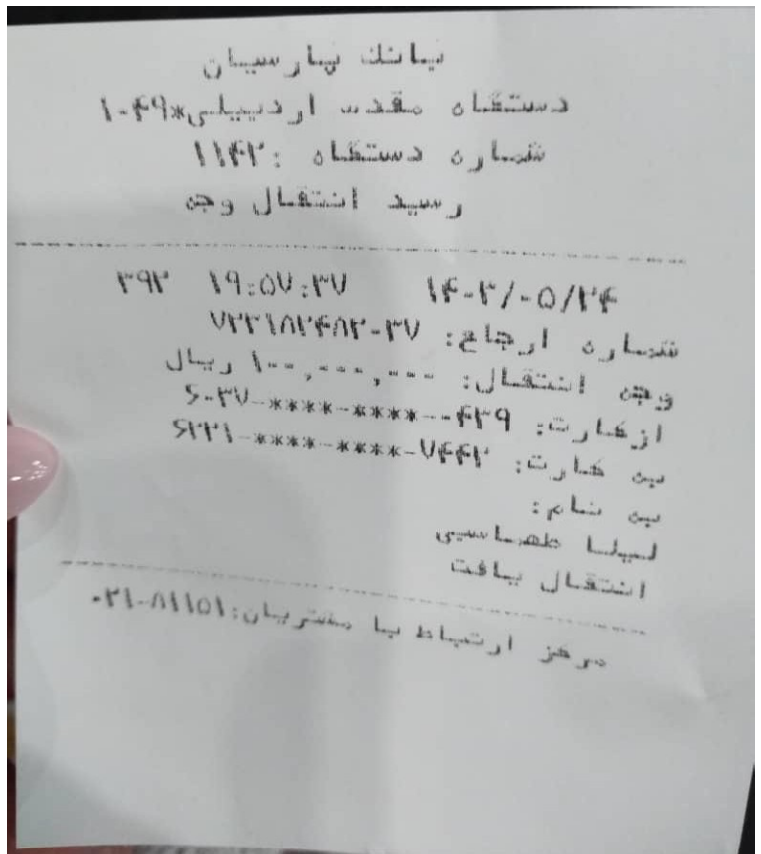 بانک پارسیان
دستگاه مقدس اردبیلی*۱۰۴۹
شماره دستگاه :۱۱۴۲
رسید انتقال وجه
۱۴۰۳/۰۵/۲۴ ۱۹:۵۷:۳۷ ۳۹۲
شماره ارجاع: ۷۲۲۱۸۲۴۸۲۰۳۷
وجه انتقال: ۱۰۰,۰۰۰,۰۰۰ ریال
ازکارت: ۶۰۳۷-****-****-۰۴۳۹
به کارت: ۶۲۲۱-****-****-۷۴۴۲
به نام:
لیلا طهماسبی
انتقال یافت
مرکز ارتباط با مشتریان:۸۱۱۵۱-۰۲۱